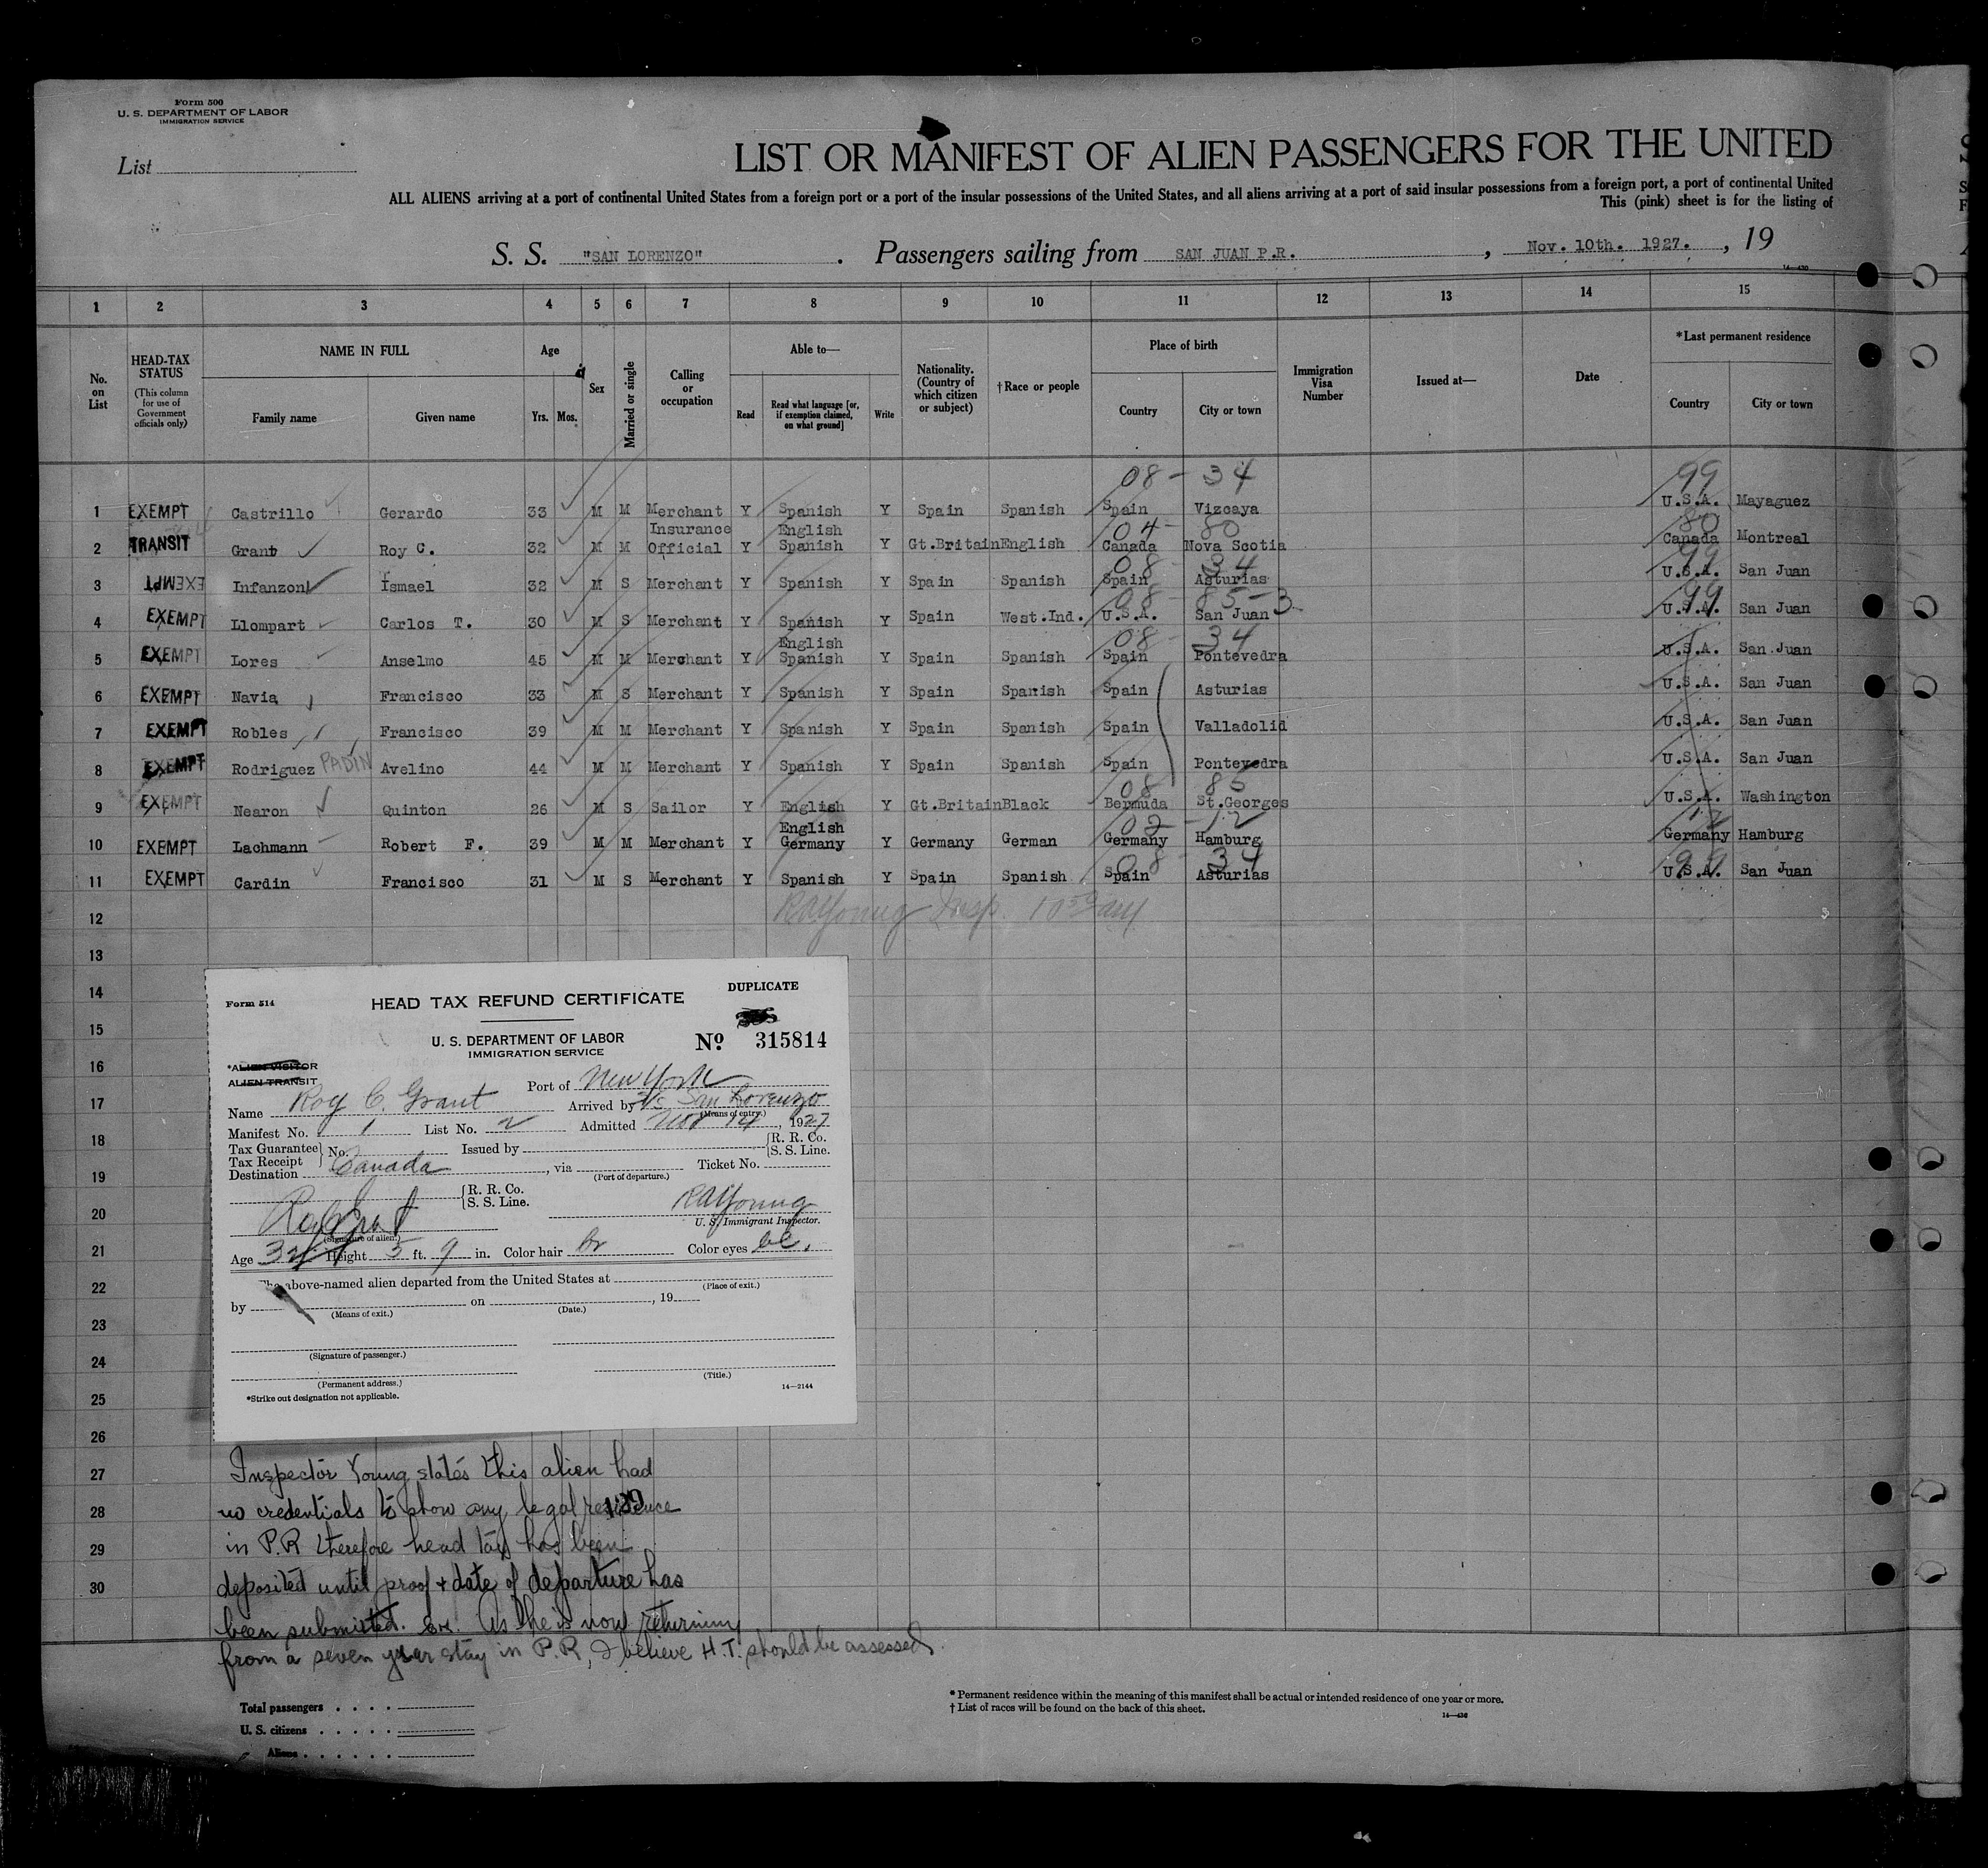 Form 500
U. S. DEPARTMENT OF LABOR
IMMIGRATION SERVICE
List
LIST OR MANIFEST OF ALIEN PASSENGERS FOR THE UNITED
ALL ALIENS arriving at a port of continental United States from a foreign port or a port of the insular possessions of the United States, and all aliens arriving at a port of said insular possessions from a foreign port, a port of continental United
This (pink) sheet is for the listing of
S. S. "SAN LORENZO". Passengers sailing from SAN JUAN P.R., Nov. 10th. 1927., 19
14—430
1 2 3 4 5 6 7 8 9 10 11 12 13 14 15
No. on List
HEAD-TAX STATUS
(This column for use of Government officials only)
NAME IN FULL
Family name
Given name
Age
Yrs. Mos.
Sex
Married or single
Calling or occupation
Able to—
Read
Read what language [or, if exemption claimed, on what ground]
Write
Nationality. (Country of which citizen or subject)
†Race or people
Place of birth
Country
City or town
Immigration Visa Number
Issued at—
Date
*Last permanent residence
Country
City or town
08 - 34 99
1 EXEMPT Castrillo Gerardo 33 M M Merchant Y Spanish Y Spain Spanish Spain Vizcaya U.S.A. Mayaguez
Insurance English 04 - 80 80
2 TRANSIT Grant Roy C. 32 M M Official Y Spanish Y Gt.Britain English Canada Nova Scotia Canada Montreal
08 - 34 99
3 EXEMPT Infanzon Ismael 32 M S Merchant Y Spanish Y Spain Spanish Spain Asturias U.S.A. San Juan
08 - 85-3 99
4 EXEMPT Llompart Carlos T. 30 M S Merchant Y Spanish Y Spain West.Ind. U.S.A. San Juan U.S.A. San Juan
English 08 - 34
5 EXEMPT Lores Anselmo 45 M M Merchant Y Spanish Y Spain Spanish Spain Pontevedra U.S.A. San Juan
6 EXEMPT Navia Francisco 33 M S Merchant Y Spanish Y Spain Spanish Spain Asturias U.S.A. San Juan
7 EXEMPT Robles Francisco 39 M M Merchant Y Spanish Y Spain Spanish Spain Valladolid U.S.A. San Juan
8 EXEMPT Rodriguez PADIN Avelino 44 M M Merchant Y Spanish Y Spain Spanish Spain Pontevedra U.S.A. San Juan
08 85
9 EXEMPT Nearon Quinton 26 M S Sailor Y English Y Gt.Britain Black Bermuda St.Georges U.S.A. Washington
English 02 - 12 12
10 EXEMPT Lachmann Robert F. 39 M M Merchant Y Germany Y Germany German Germany Hamburg Germany Hamburg
08 - 34 99
11 EXEMPT Cardin Francisco 31 M S Merchant Y Spanish Y Spain Spanish Spain Asturias U.S.A. San Juan
12 RAYoung Insp.
13
14
15
16
17
18
19
20
21
22
23
24
25
26
27
28
29
30
Form 514
HEAD TAX REFUND CERTIFICATE
DUPLICATE
U. S. DEPARTMENT OF LABOR
IMMIGRATION SERVICE
No. 315814
*ALIEN VISITOR
ALIEN TRANSIT
Port of New York
Name Roy C. Grant Arrived by SS San Lorenzo
(Means of entry.)
Manifest No. 1 List No. 2 Admitted Nov 14, 1927
Tax Guarantee Tax Receipt } No. Issued by { R. R. Co. S. S. Line.
Destination Canada, via Ticket No.
(Port of departure.)
{ R. R. Co. S. S. Line.
Roy C Grant RAYoung
(Signature of alien.) U. S. Immigrant Inspector.
Age 32 Height 5 ft. 9 in. Color hair br Color eyes bl.
The above-named alien departed from the United States at
(Place of exit.)
by on , 19
(Means of exit.) (Date.)
(Signature of passenger.)
(Permanent address.) (Title.)
*Strike out designation not applicable.
14—2144
Inspector Young states this alien had
no credentials to show any legal residence
189
in P.R therefore head tax has been
deposited until proof + date of departure has
been submitted. As he is now returning
from a seven year stay in P.R, I believe H.T. should be assessed.
Total passengers . . . .
U. S. citizens . . . . .
Aliens . . . . . .
* Permanent residence within the meaning of this manifest shall be actual or intended residence of one year or more.
† List of races will be found on the back of this sheet.
14—430